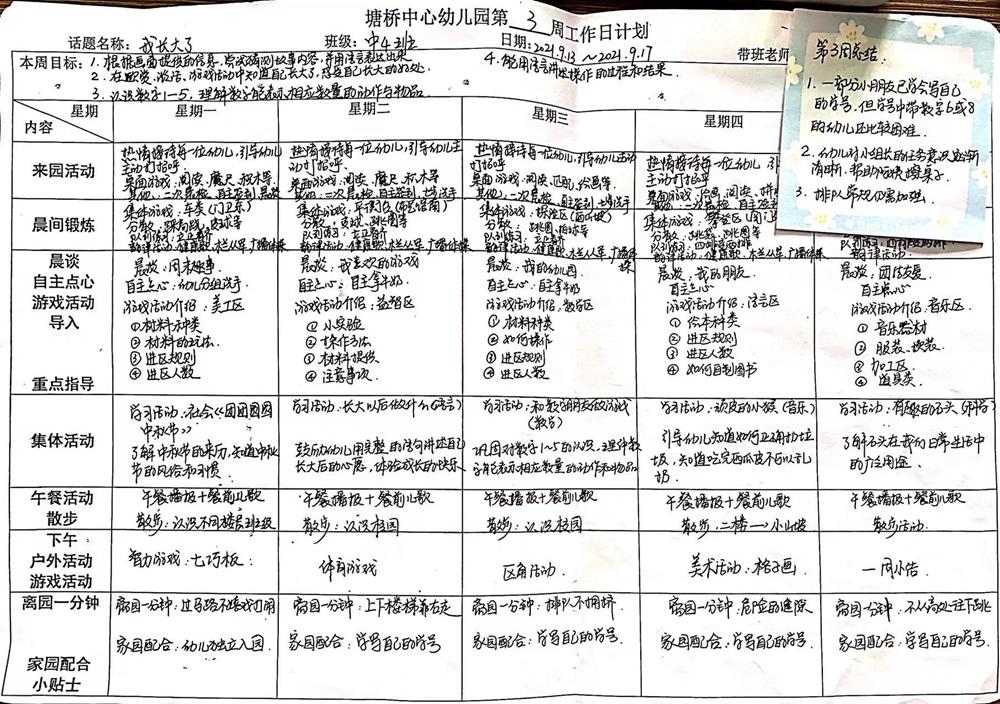 塘桥中心幼儿园第 3 周工作日计划
话题名称：我长大了 班级：中4班 日期：2021.9.13 ～2021.9.17 带班老师
本周目标：1. 根据画面提供的信息，尝试猜测故事内容，并用语言表达出来。 4. 能用语言讲述操作的过程和结果。
2. 在欣赏、谈话、游戏活动中知道自己长大了，感受自己长大的好处。
3. 认识数字1-5，理解数字能表示相应数量的动作与物品
第3周总结
1. 一部分小朋友已学会写自己
的学号，但学号中带数字6或8
的幼儿还比较困难．
2. 幼儿对小组长的任务意识
清晰，帮助
3. 排队常规仍需加强．
星期 星期一 星期二 星期三 星期四
内容
来园活动
热情接待每一位幼儿，引导幼儿
主动打招呼
桌面游戏：阅读、魔尺、积木等
其他：二次晨检、自主签到
热情接待每一位幼儿，引导幼儿主
动打招呼．
桌面游戏：阅读、魔尺、积木等
其他：二次晨检、自主签到
热情接待每一位幼儿，引导幼儿主动
打招呼．
桌面游戏：阅读、匹配、绘画等．
其他：二次晨检、自主签到
热情接待每一位幼儿，引
主动打招呼．
晨间锻炼
集体游戏：车类
分散：皮球等
律动活动：健康歌、木兰从军、广播体操
集体游戏：平衡区
分散：皮球、跳圈等
集体游戏
分散：跳圈
集体游戏：攀登区
分散：
晨谈
自主点心
游戏活动
导入
重点指导
晨谈：周末趣事
自主点心：幼儿分组洗手
游戏活动介绍：美工区
①材料种类
②材料的玩法
③进区规则
④进区人数
晨谈：我喜欢的游戏
自主点心：自主拿奶
游戏活动介绍：益智区
①小实验
②操作方法
③材料提供
④注意事项
晨谈：我的幼儿园
自主点心：自主拿奶
游戏活动介绍：数学区
①材料种类
②如何操作
③进区规则
④进区人数
晨谈：我的朋友
自主点心
游戏活动介绍：语言区
①绘本种类
②进区规则
③进区人数
④如何自制图书
晨谈：团结友爱
自主点心
游戏活动介绍：音乐区
①音乐器材
②服装、换装
③加工区
④道具类
集体活动
学习活动：社会《团团圆圆
中秋节》
了解中秋节的来历，知道中秋
节的风俗和习惯
学习活动：长大以后做什么（语言）
鼓励幼儿用完整的语句讲述自己
长大后的心愿，体验成长的快乐．
学习活动：和数字朋友做游戏
（数学）
巩固对数字1-5的认识，理解数
字能表示相应数量的动作和物品
学习活动：顽皮的小猴（音乐）
引导幼儿知道如何正确扔垃
圾，知道吃完西瓜皮不可以乱
扔
学习活动：有趣的石头（科学）
了解石头在我们日常生活中
的广泛用途．
午餐活动
散步
午餐播报＋餐前儿歌
散步：认识不同楼层班级
午餐播报＋餐前儿歌
散步：认识校园
午餐播报＋餐前儿歌
散步：认识校园
午餐播报＋餐前儿歌
散步：二楼→小山坡
午餐播报＋餐前儿歌
散步活动．
下午
户外活动
游戏活动
智力游戏：七巧板．
体育游戏
区角活动．
美术活动：格子画
一周小结
离园一分钟
离园一分钟：过马路不嬉戏打闹
离园一分钟：上下楼梯靠右走
离园一分钟：排队不拥挤
离园一分钟：危险的缝隙
离园一分钟：不从高处往下跳
家园配合
小贴士
家园配合：幼儿独立入园．
家园配合：学写自己的学号
家园配合：学写自己的学号．
家园配合：学写自己的学号．
家园配合：学写自己的学号．